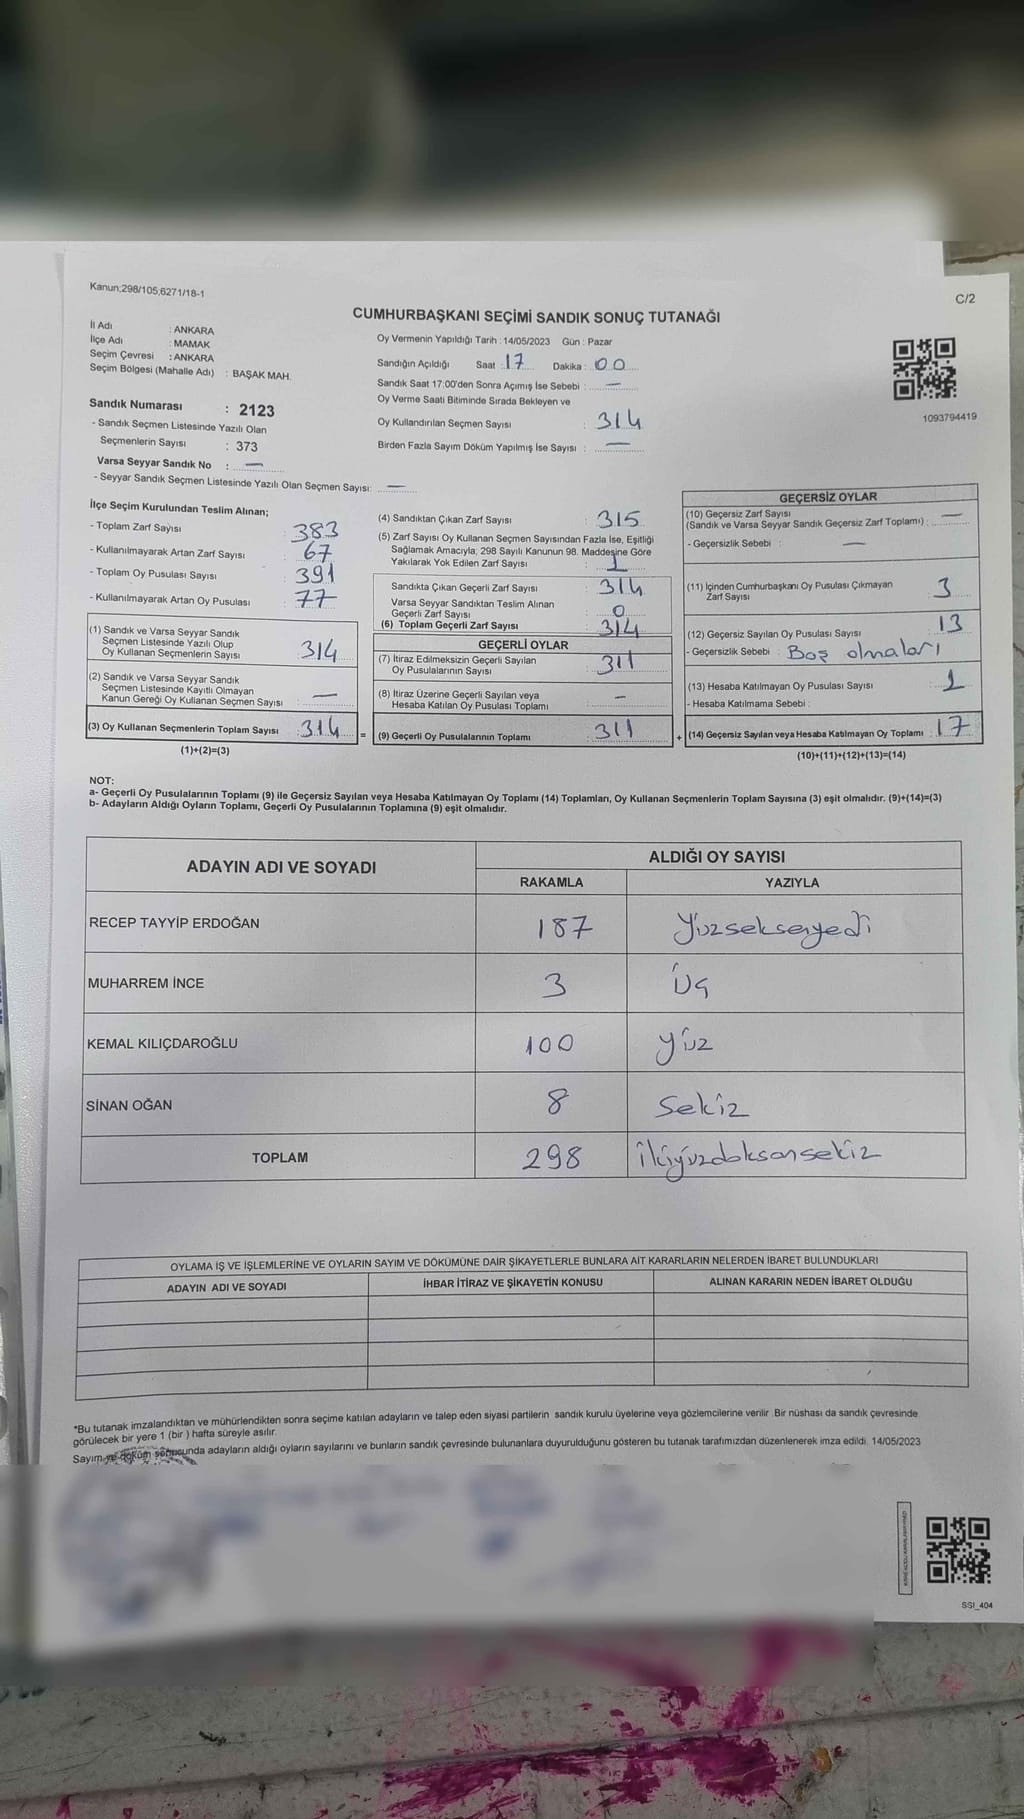 Kanun;298/105,6271/18-1
C/2
CUMHURBAŞKANI SEÇİMİ SANDIK SONUÇ TUTANAĞI
İl Adı : ANKARA
İlçe Adı : MAMAK
Seçim Çevresi : ANKARA
Seçim Bölgesi (Mahalle Adı) : BAŞAK MAH.
Sandık Numarası : 2123
- Sandık Seçmen Listesinde Yazılı Olan
Seçmenlerin Sayısı : 373
Varsa Seyyar Sandık No : —
- Seyyar Sandık Seçmen Listesinde Yazılı Olan Seçmen Sayısı: —
Oy Vermenin Yapıldığı Tarih : 14/05/2023 Gün : Pazar
Sandığın Açıldığı Saat : 17 Dakika : 00
Sandık Saat 17:00'den Sonra Açımış İse Sebebi : —
Oy Verme Saati Bitiminde Sırada Bekleyen ve
Oy Kullandırılan Seçmen Sayısı : 314
Birden Fazla Sayım Döküm Yapılmış İse Sayısı : —
1093794419
İlçe Seçim Kurulundan Teslim Alınan;
- Toplam Zarf Sayısı : 383
- Kullanılmayarak Artan Zarf Sayısı : 67
- Toplam Oy Pusulası Sayısı : 391
- Kullanılmayarak Artan Oy Pusulası : 77
(1) Sandık ve Varsa Seyyar Sandık
Seçmen Listesinde Yazılı Olup
Oy Kullanan Seçmenlerin Sayısı : 314
(2) Sandık ve Varsa Seyyar Sandık
Seçmen Listesinde Kayıtlı Olmayan
Kanun Gereği Oy Kullanan Seçmen Sayısı : —
(3) Oy Kullanan Seçmenlerin Toplam Sayısı : 314 =
(1)+(2)=(3)
(4) Sandıktan Çıkan Zarf Sayısı : 315
(5) Zarf Sayısı Oy Kullanan Seçmen Sayısından Fazla İse, Eşitliği
Sağlamak Amacıyla, 298 Sayılı Kanunun 98. Maddesine Göre
Yakılarak Yok Edilen Zarf Sayısı : 1
Sandıkta Çıkan Geçerli Zarf Sayısı : 314
Varsa Seyyar Sandıktan Teslim Alınan
Geçerli Zarf Sayısı : 0
(6) Toplam Geçerli Zarf Sayısı : 314
GEÇERLİ OYLAR
(7) İtiraz Edilmeksizin Geçerli Sayılan
Oy Pusulalarının Sayısı : 311
(8) İtiraz Üzerine Geçerli Sayılan veya
Hesaba Katılan Oy Pusulası Toplamı : —
(9) Geçerli Oy Pusulalarının Toplamı : 311 +
GEÇERSİZ OYLAR
(10) Geçersiz Zarf Sayısı
(Sandık ve Varsa Seyyar Sandık Geçersiz Zarf Toplamı) : —
- Geçersizlik Sebebi : —
(11) İçinden Cumhurbaşkanı Oy Pusulası Çıkmayan
Zarf Sayısı : 3
(12) Geçersiz Sayılan Oy Pusulası Sayısı : 13
- Geçersizlik Sebebi : Boş olmaları
(13) Hesaba Katılmayan Oy Pusulası Sayısı : 1
- Hesaba Katılmama Sebebi :
(14) Geçersiz Sayılan veya Hesaba Katılmayan Oy Toplamı : 17
(10)+(11)+(12)+(13)=(14)
NOT:
a- Geçerli Oy Pusulalarının Toplamı (9) ile Geçersiz Sayılan veya Hesaba Katılmayan Oy Toplamı (14) Toplamları, Oy Kullanan Seçmenlerin Toplam Sayısına (3) eşit olmalıdır. (9)+(14)=(3)
b- Adayların Aldığı Oyların Toplamı, Geçerli Oy Pusulalarının Toplamına (9) eşit olmalıdır.
ADAYIN ADI VE SOYADI
ALDIĞI OY SAYISI
RAKAMLA YAZIYLA
RECEP TAYYİP ERDOĞAN 187 Yüzseksenyedi
MUHARREM İNCE 3 Üç
KEMAL KILIÇDAROĞLU 100 yüz
SİNAN OĞAN 8 Sekiz
TOPLAM 298 ikiyüzdoksansekiz
OYLAMA İŞ VE İŞLEMLERİNE VE OYLARIN SAYIM VE DÖKÜMÜNE DAİR ŞİKAYETLERLE BUNLARA AİT KARARLARIN NELERDEN İBARET BULUNDUKLARI
ADAYIN ADI VE SOYADI İHBAR İTİRAZ VE ŞİKAYETİN KONUSU ALINAN KARARIN NEDEN İBARET OLDUĞU
*Bu tutanak imzalandıktan ve mühürlendikten sonra seçime katılan adayların ve talep eden siyasi partilerin sandık kurulu üyelerine veya gözlemcilerine verilir .Bir nüshası da sandık çevresinde
görülecek bir yere 1 (bir ) hafta süreyle asılır.
Sayım ve döküm sonucunda adayların aldığı oyların sayılarını ve bunların sandık çevresinde bulunanlara duyurulduğunu gösteren bu tutanak tarafımızdan düzenlenerek imza edildi. 14/05/2023
SSI_404